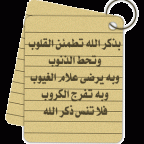 بذكر الله تطمئن القلوب
وتحط الذنوب
وبه يرضى علام الغيوب
وبه تفرج الكروب
فلا تنس ذكر الله